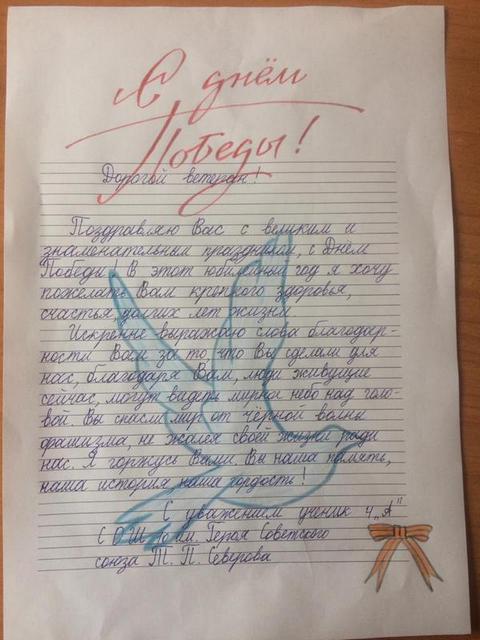 С днём
Победы!
Дорогой ветеран!
Поздравляю Вас с великим и
знаменательным праздником, с Днём
Победы! В этот юбилейный год я хочу
пожелать Вам крепкого здоровья,
счастья, долгих лет жизни.
Искренне выражаю слова благодар-
ности Вам за то, что Вы сделали для
нас, благодаря Вам, люди живущие
сейчас, могут видеть мирное небо над голо-
вой. Вы спасли мир от чёрной волны
фашизма, не жалея своей жизни ради
нас. Я горжусь Вами. Вы наша память,
наша история, наша гордость!
С уважением ученик 4 „А"
СОШ им. Героя Советского
союза Т. П. Северова